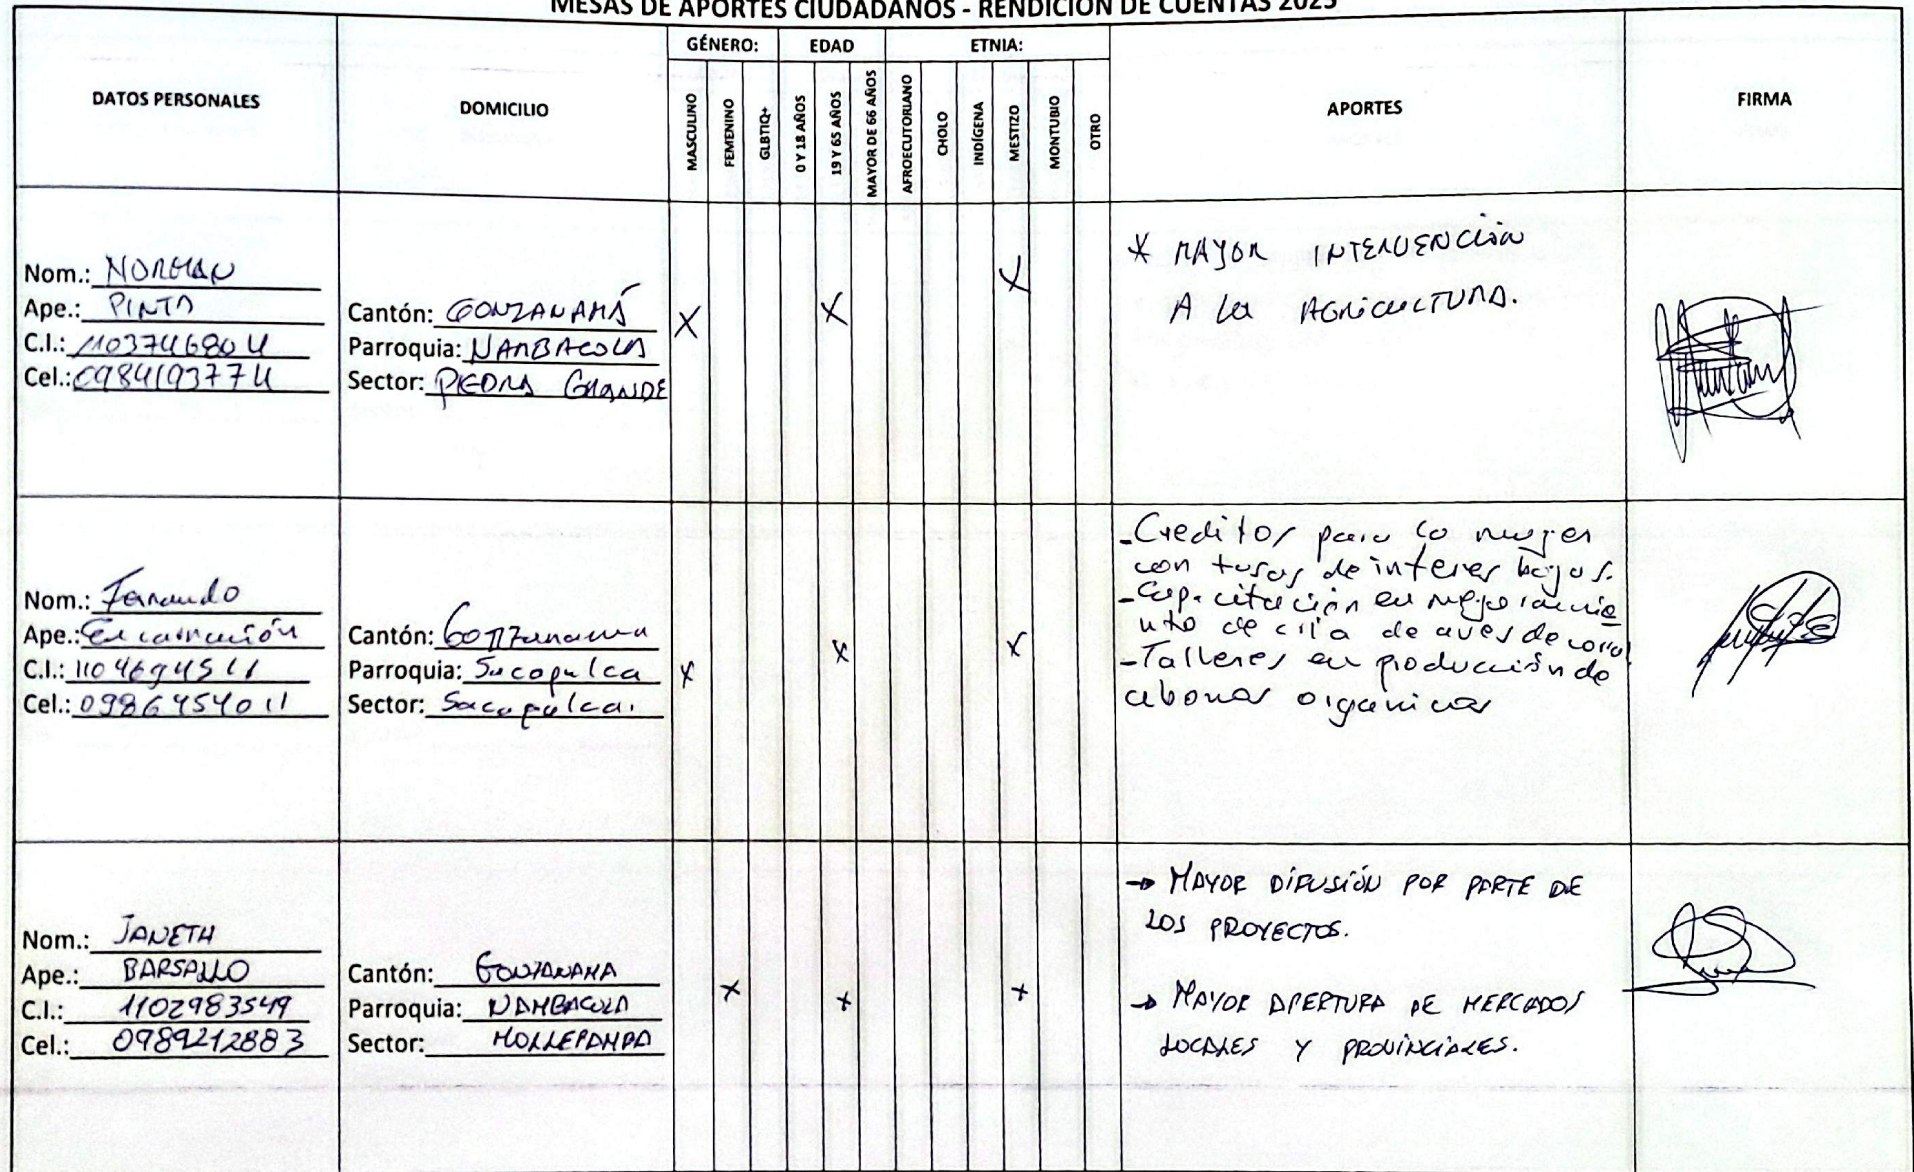 MESAS DE APORTES CIUDADANOS - RENDICIÓN DE CUENTAS 2023
DATOS PERSONALES
DOMICILIO
GÉNERO:
EDAD
ETNIA:
APORTES
FIRMA
MASCULINO
FEMENINO
GLBTIQ+
0 Y 18 AÑOS
19 Y 65 AÑOS
MAYOR DE 66 AÑOS
AFROECUTORIANO
CHOLO
INDÍGENA
MESTIZO
MONTUBIO
OTRO
Nom.: NORMAN
Ape.: PINTA
C.I.: 1103746804
Cel.: 0984193774
Cantón: GONZANAMÁ
Parroquia: NAMBACOLA
Sector: PIEDRA GRANDE
X
X
X
* MAYOR INTERVENCIÓN
A LA AGRICULTURA.
Nom.: Fernando
Ape.: Encarnación
C.I.: 1104694511
Cel.: 0986454011
Cantón: Gonzanama
Parroquia: Sacapalca
Sector: Sacapalca.
X
X
X
- Creditos para la mujer
con tasas de interes bajas.
- Capacitación en mejoramie
nto de cría de aves de corral
- Talleres en producción de
abonos organicos
Nom.: JANETH
Ape.: BARSALLO
C.I.: 1102983549
Cel.: 0989212883
Cantón: GONZANAMA
Parroquia: NAMBACOLA
Sector: MOLLEPAMPA
X
X
X
→ MAYOR DIFUSIÓN POR PARTE DE
LOS PROYECTOS.
→ MAYOR APERTURA DE MERCADOS
LOCALES Y PROVINCIALES.